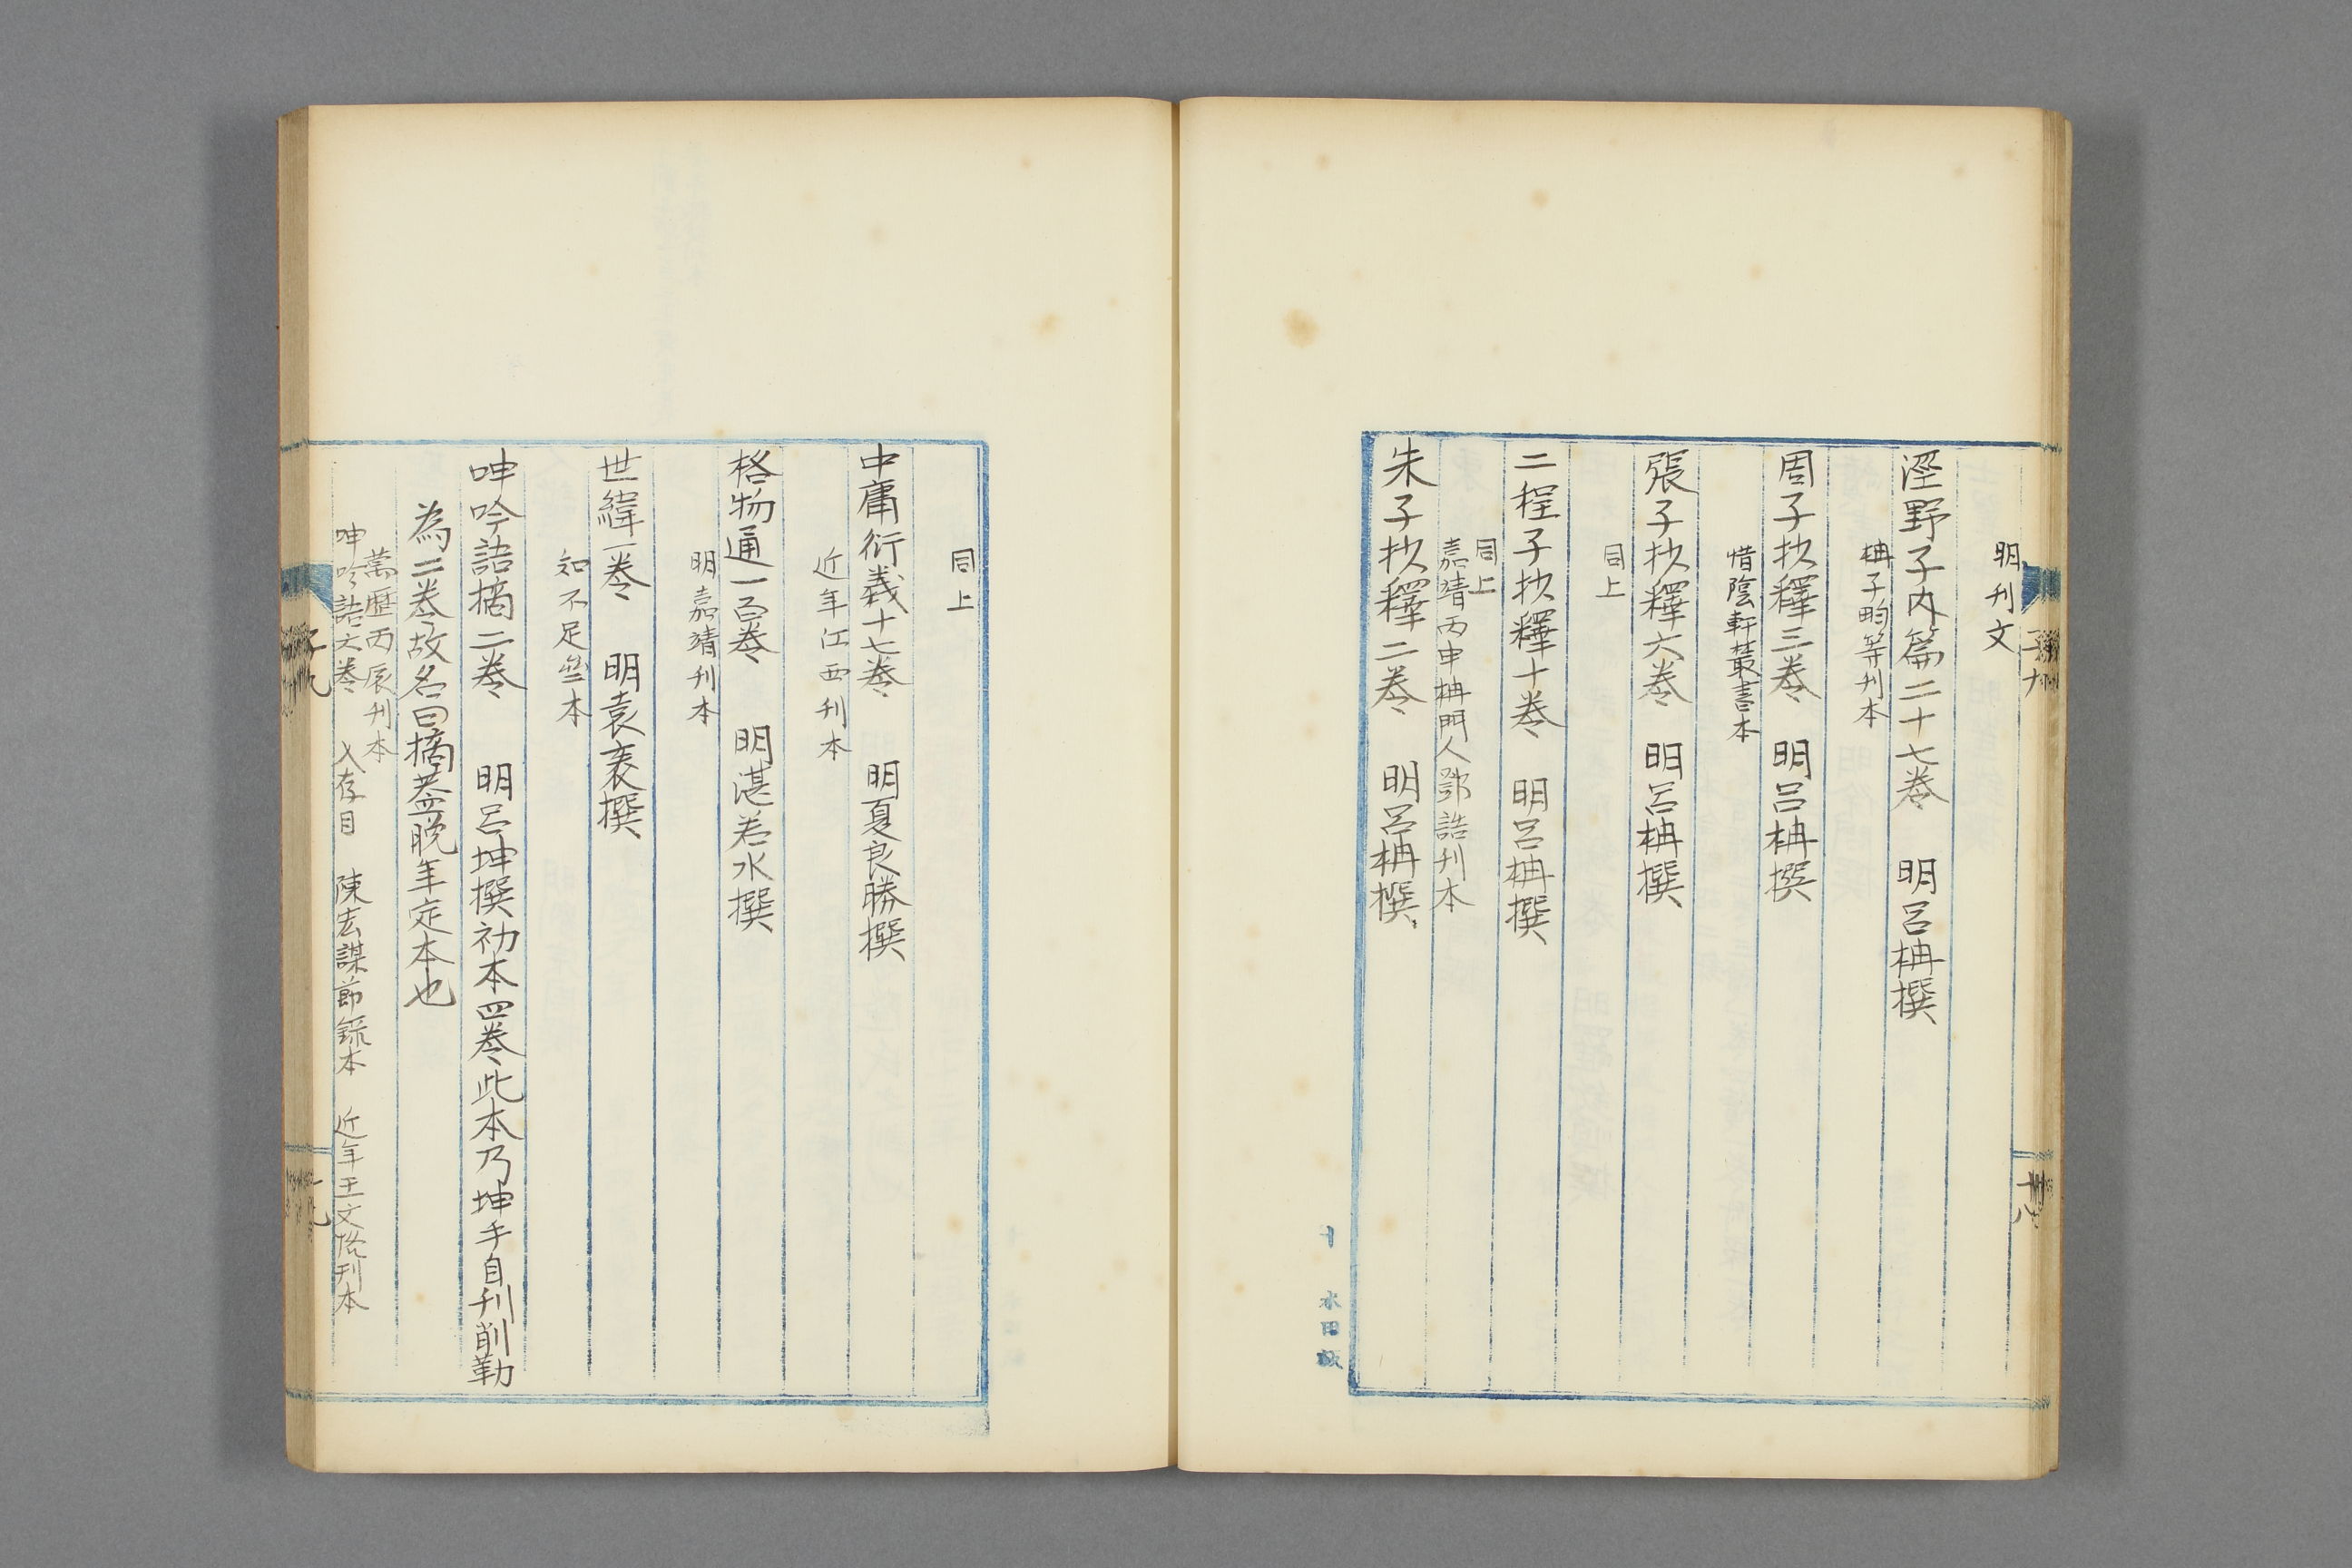 明刊文
涇野子內篇二十七卷　明呂柟撰
柟子畇等刊本
周子抄釋三卷　明呂柟撰
惜陰軒叢書本
張子抄釋六卷　明呂柟撰
同上
二程子抄釋十卷　明呂柟撰
同上
嘉靖丙申柟門人鄧誥刊本
朱子抄釋二卷　明呂柟撰
同上
中庸衍義十七卷　明夏良勝撰
近年江西刊本
格物通一百卷　明湛若水撰
明嘉靖刊本
世緯一卷　明袁袠撰
知不足齋本
呻吟語摘二卷　明呂坤撰初本四卷此本乃坤手自刊削勒
為二卷故名曰摘蓋晚年定本也
萬歷丙辰刊本
呻吟語六卷　入存目　陳宏謀節錄本　近年王文恪刊本